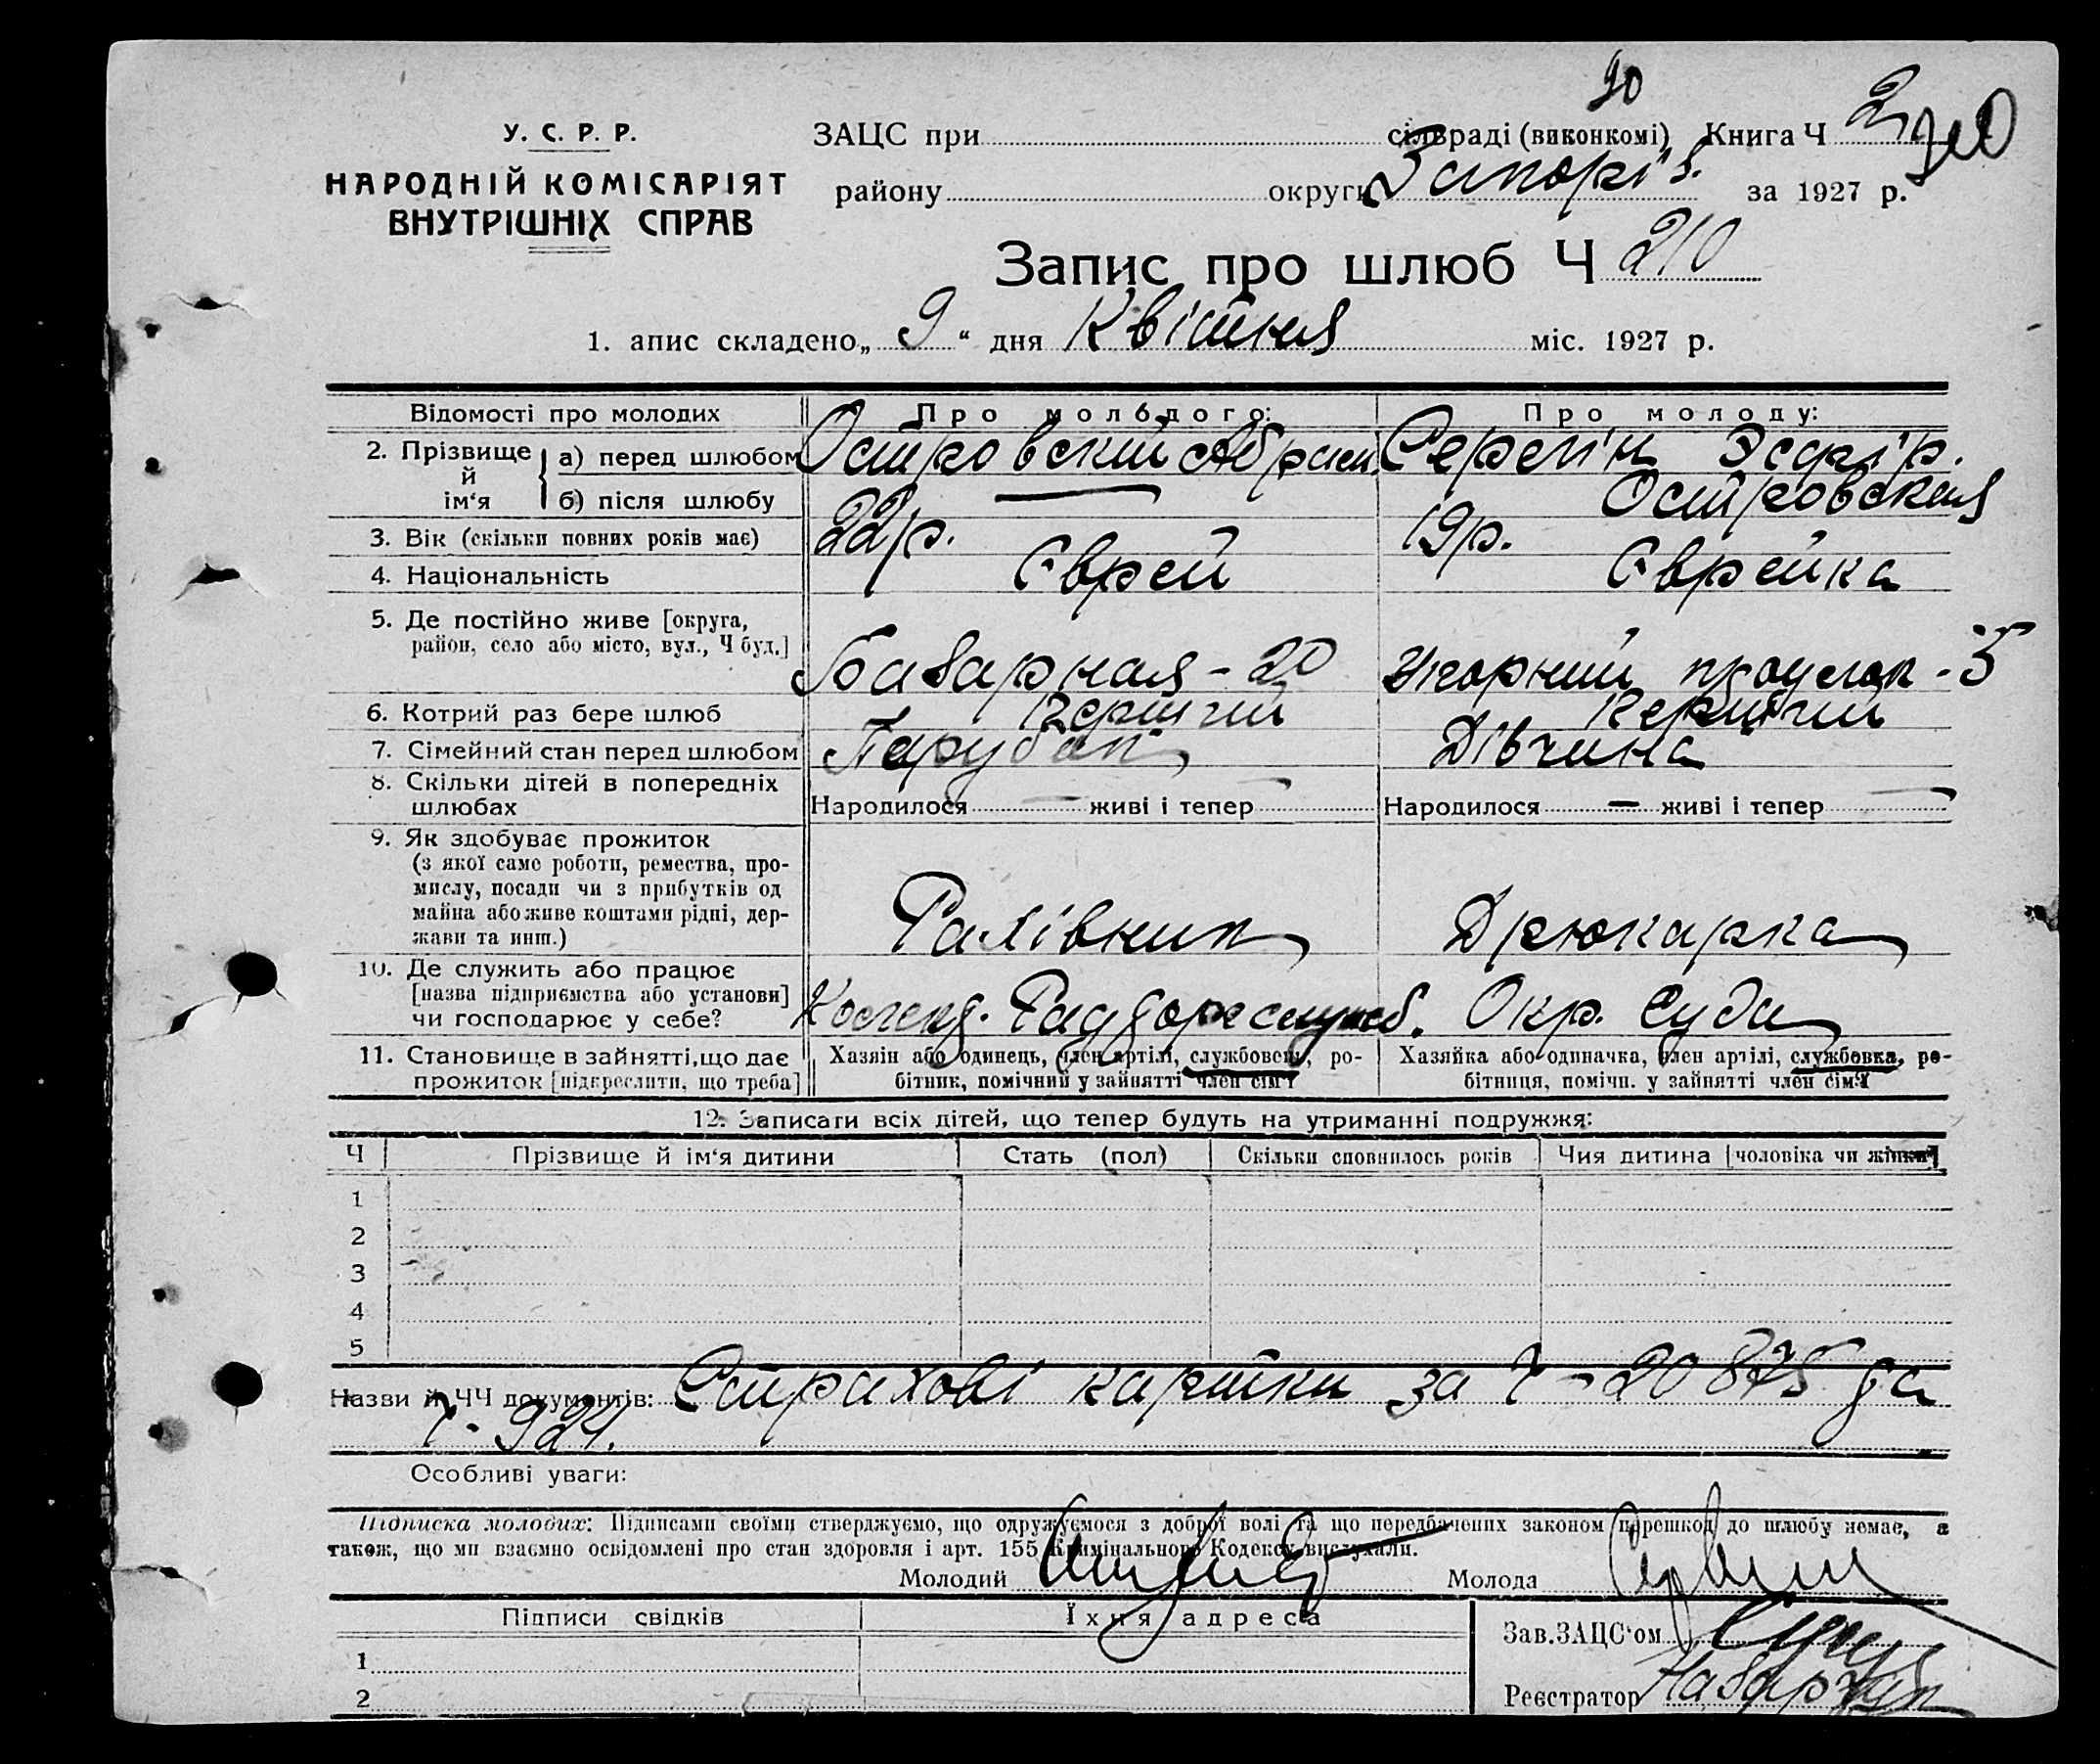 90
У. С. Р. Р.
НАРОДНІЙ КОМІСАРІЯТ
ВНУТРІШНІХ СПРАВ
ЗАЦС при сільраді (виконкомі) Книга Ч 2
району округи Запоріз. за 1927 р.
Запис про шлюб Ч 210
1. апис складено „ 9 “ дня Квітня міс. 1927 р.
Відомості про молодих Про молодого: Про молоду:
2. Прізвище й ім‘я
а) перед шлюбом Островский Абрам
б) після шлюбу — Островская
3. Вік (скільки повних років має) 22 р. 19 р.
4. Національність Єврей Єврейка
5. Де постійно живе [округа,
район, село або місто, вул., Ч буд.]
Базарная - 20 - 5
6. Котрий раз бере шлюб Первий Первий
7. Сімейний стан перед шлюбом Парубок Дівчина
8. Скільки дітей в попередніх
шлюбах
Народилося — живі і тепер — Народилося — живі і тепер —
9. Як здобуває прожиток
(з якої саме роботи, ремества, про-
мислу, посади чи з прибутків од
майна або живе коштами рідні, дер-
жави та инш.)
Дрюкарка
10. Де служить або працює
[назва підприємства або установи]
чи господарює у себе?
Окр. Суда
11. Становище в зайнятті, що дає
прожиток [підкреслити, що треба]
Хазяїн або одинець, член артілі, службовець, ро-
бітник, помічний у зайнятті член сім‘ї
Хазяйка або одиначка, член артілі, службовка, ро-
бітниця, помічн. у зайнятті член сім‘ї
12. Записати всіх дітей, що тепер будуть на утриманні подружжя:
Ч Прізвище й ім‘я дитини Стать (пол) Скільки сповнилось років Чия дитина [чоловіка чи жінки]
1
2
3
4
5
Назви й ЧЧ документів: Страхові картки за Ч - 20875 да
Ч - 924.
Особливі уваги:
Підписка молодих: Підписами своїми стверджуємо, що одружуємося з доброї волі та що передбачених законом перешкод до шлюбу немає, а
також, що ми взаємно освідомлені про стан здоровля і арт. 155 Кримінального Кодексу вислухали.
Молодий Молода
Підписи свідків Їхня адреса
Зав. ЗАЦС‘ом
1
2
Реєстратор